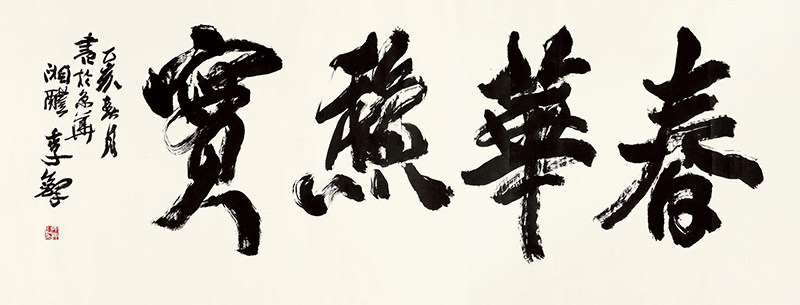 春華龝實
丁亥春月
書於京華
湘醴 李鐸